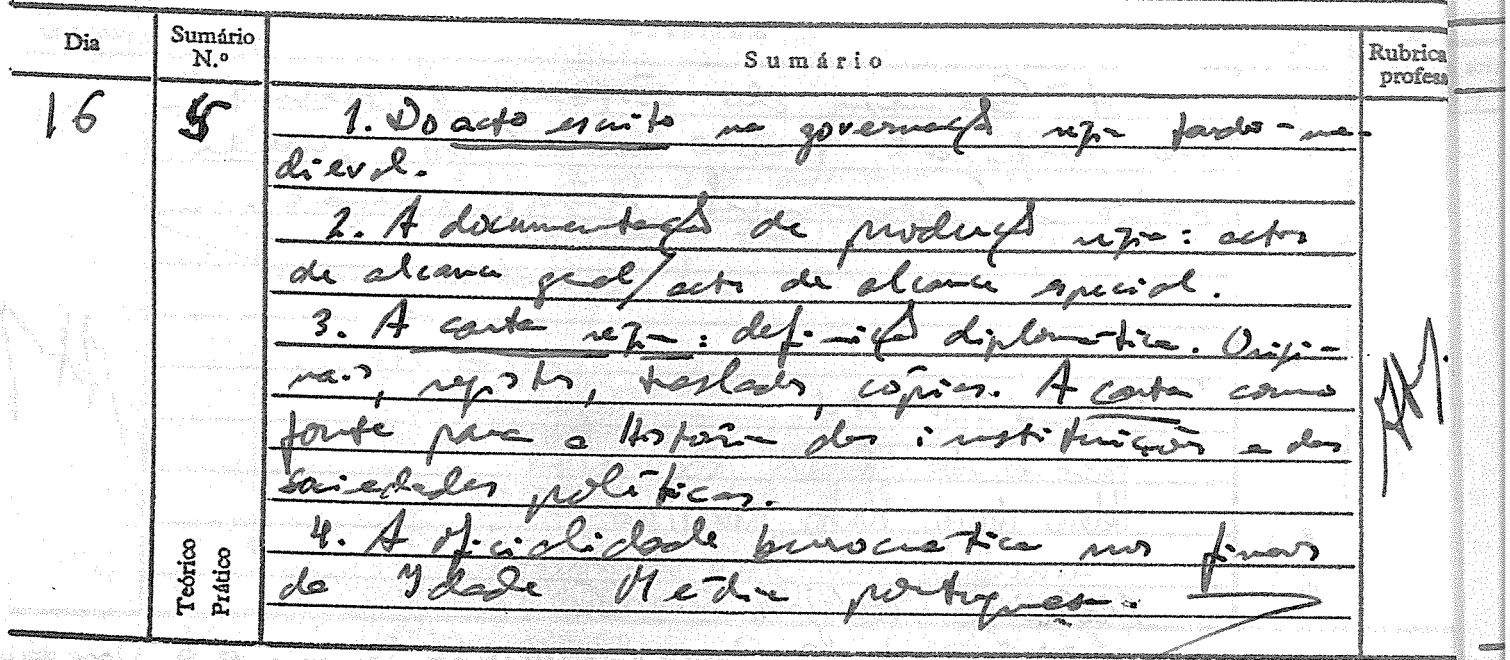 Dia Sumário N.º Sumário Rubrica profess
16 5 1. Do acto escrito na governação régia tardo-me-
dieval.
2. A documentação de produção régia: actos
de alcance geral/actos de alcance especial.
3. A carta régia: definição diplomática. Origi-
nais, registos, traslados, cópias. A carta como
fonte para a História das instituições e das
sociedades políticas.
4. A oficialidade burocrática nos finais
da Idade Média portuguesa.
Teórico
Prático